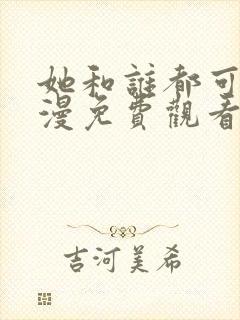 她和誰都可
漫免費觀看
吉河美希